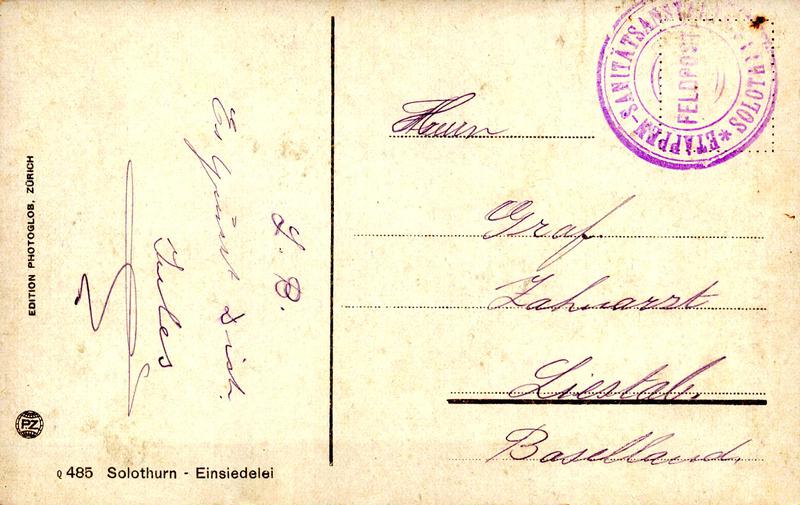 L. E.
Es grüsst Dich
Jules
Herrn
Graf
Zahnarzt
Liestal,
Baselland,
ETAPPEN-SANITÄTSANSTALT SOLOTHURN *
FELDPOST
EDITION PHOTOGLOB, ZÜRICH
PZ
Q 485 Solothurn - Einsiedelei